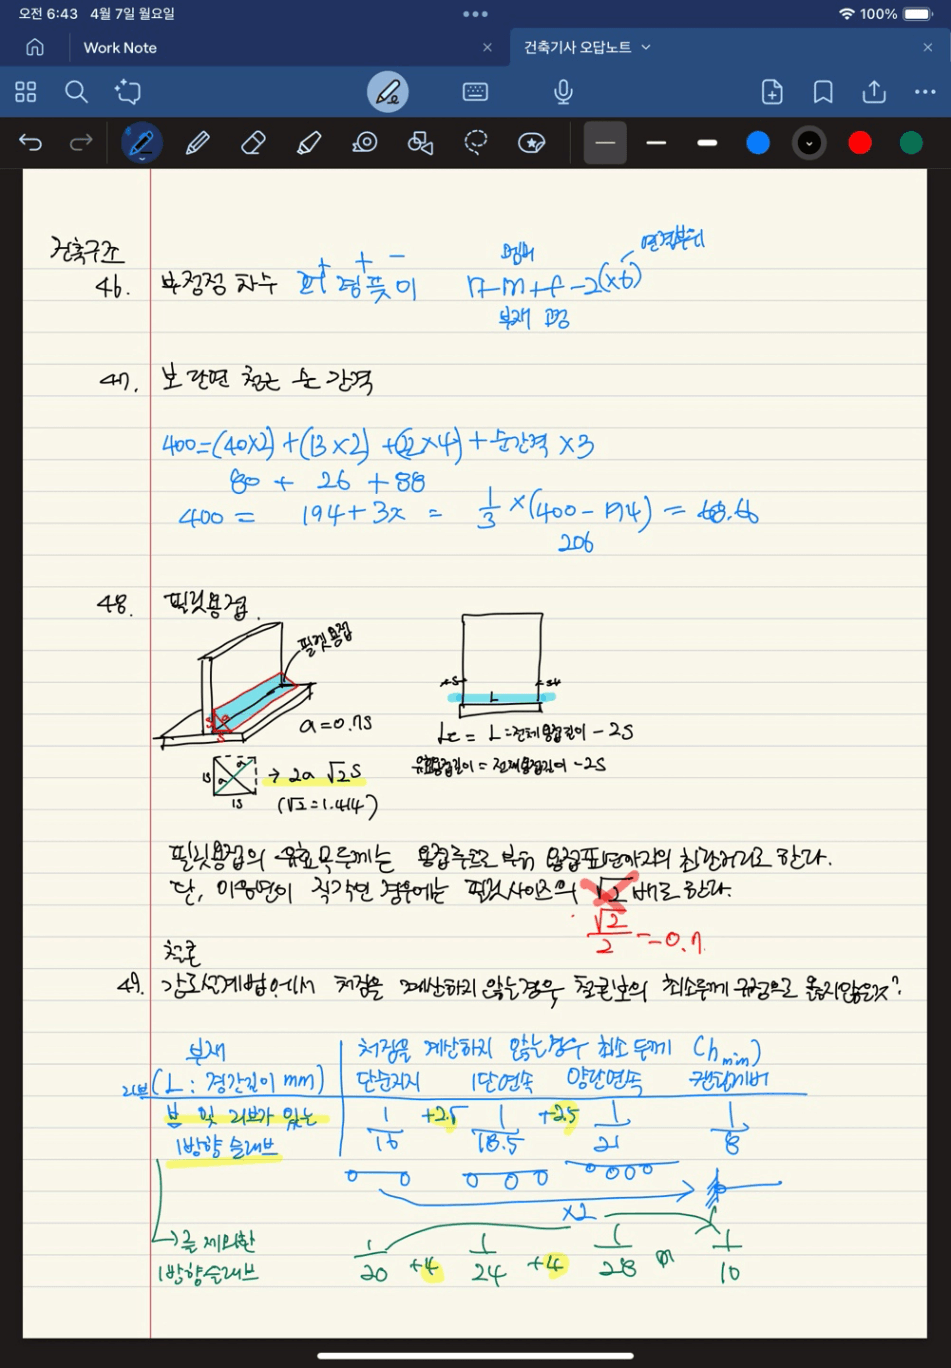 오전 6:43 4월 7일 월요일
100%
Work Note
건축기사 오답노트
건축구조
연결부위
+ + -
46. 부정정 차수
n-m+f-2(x6)
부재
47. 보 단면 철근 순 간격
400=(40x2)+(13x2)+(22x4)+순간격x3
80 + 26 +88
400 = 194+3x = 1/3 x(400-194) = 68.66
206
48. 필릿용접.
필릿용접
S
S
a
a=0.7S
L
Le = L=전체용접길이 -2S
유효용접길이=전체용접길이-2S
1S
a
a
1S
→ 2a √2S
(√2=1.414)
필릿용접의 유효목두께는 용접루트로 부터 용접표면까지의 최단거리로 한다.
단, 이음면이 직각인 경우에는 필릿사이즈의 √2 배로 한다.
√2/2 =0.7
철콘
49. 강도설계법에서 처짐을 계산하지 않는경우, 철콘보의 최소두께 규정으로 옳지않은것?
부재
처짐을 계산하지 않는경우 최소 두께 (hmin)
(L : 경간길이 mm)
단순지지 1단연속 양단연속 캔틸레버
보 및 리브가 있는
1방향 슬래브
1/16 +2.5 1/18.5 +2.5 1/21 1/8
x2
→ 를 제외한
1방향슬래브
1/20 +4 1/24 +4 1/28 1/10